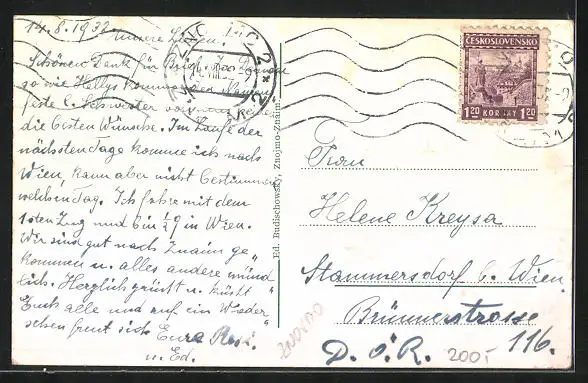 14.8.1932
Unsere Lieben!
Schönen Dank für Brief. Zu Deinem
so wie Hellys kommenden Namens
feste l. Schwester von uns beiden
die besten Wünsche. Im Laufe der
nächsten Tage komme ich nach
Wien, kann aber nicht bestimmen
welchen Tag. Ich fahre mit dem
1sten Zug und bin ½9 in Wien.
Wir sind gut nach Znaim ge„
kommen u. alles andere münd„
lich. Herzlich grüßt u. küßt
Euch alle und auf ein Wieder„
sehen freut sich Eure Resi.
u. Ed.
Ed. Budischowsky, Znojmo-Znaim
ZNOJMO 2
ČESKOSLOVENSKO
1.20 KORUNY 1.20
Frau
Helene Kreysa
Stammersdorf b. Wien.
Brünnerstrasse
116.
D. Ö. R.
200,-